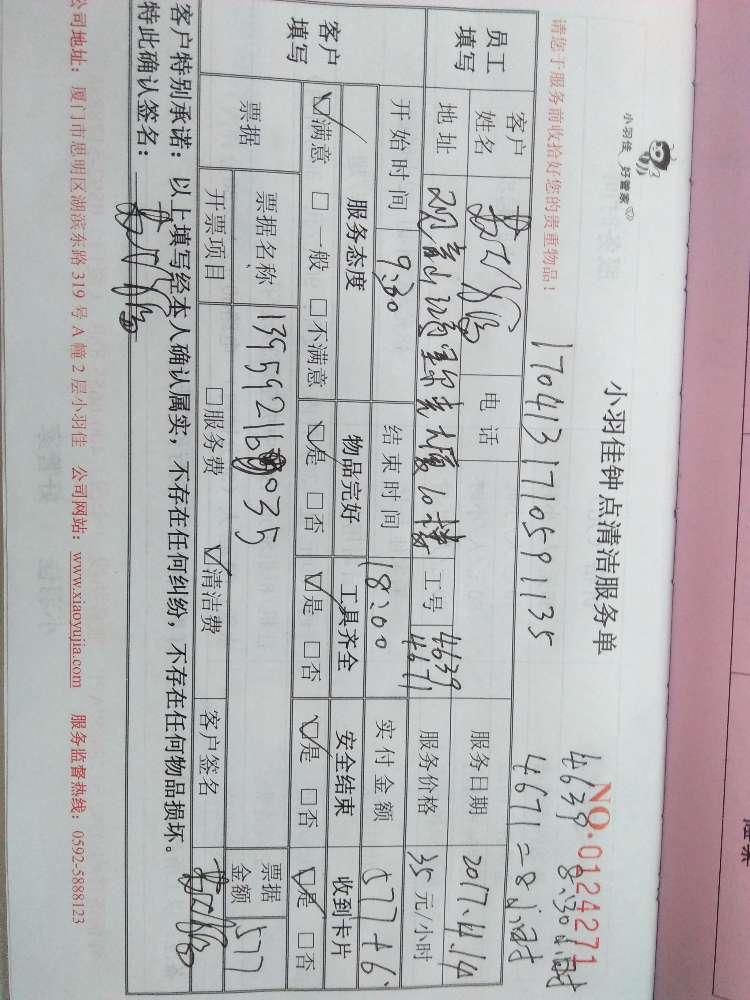 小羽佳 好管家
小羽佳钟点清洁服务单
NO.0124271
4639 8:30小时
4671=8小时
请您于服务前收拾好您的贵重物品!
1704131710591135
员工填写
客户姓名
电话
服务日期 2017.4.14
地址
大厦10楼
工号 4639
4671
服务价格 35元/小时
开始时间 9:30
结束时间 18:00
实付金额 577+6
客户填写
服务态度 物品完好 工具齐全 安全结束 收到卡片
☑满意 □一般 □不满意 ☑是 □否 ☑是 □否 ☑是 □否 ☑是 □否
票据
票据名称
035
票据金额 577
开票项目 □服务费 ☑清洁费 客户签名
客户特别承诺:以上填写经本人确认属实,不存在任何纠纷,不存在任何物品损坏。
特此确认签名:
公司地址:厦门市思明区湖滨东路319号A幢2层小羽佳 公司网站:www.xiaoyujia.com 服务监督热线:0592-5888123